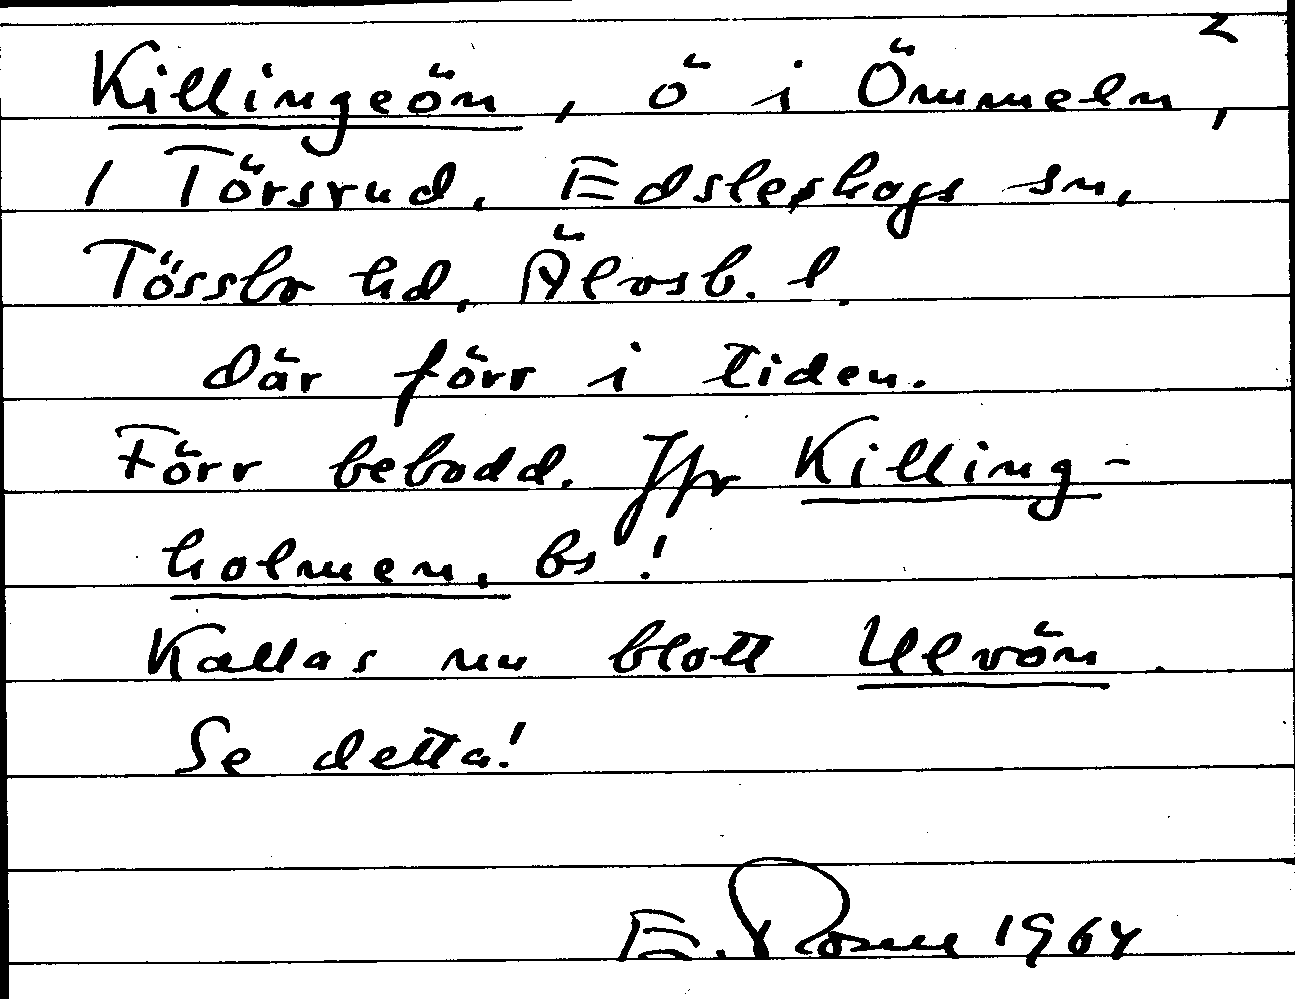 2
Killingeön, ö i Ömmeln,
1 Törsrud, Edsleskogs sn,
Tössbo hd, Älvsb. l.
där förr i tiden.
Förr bebodd. Jfr Killing-
holmen, bs!
Kallas nu blott Ulvön.
Se detta!
E. 1964